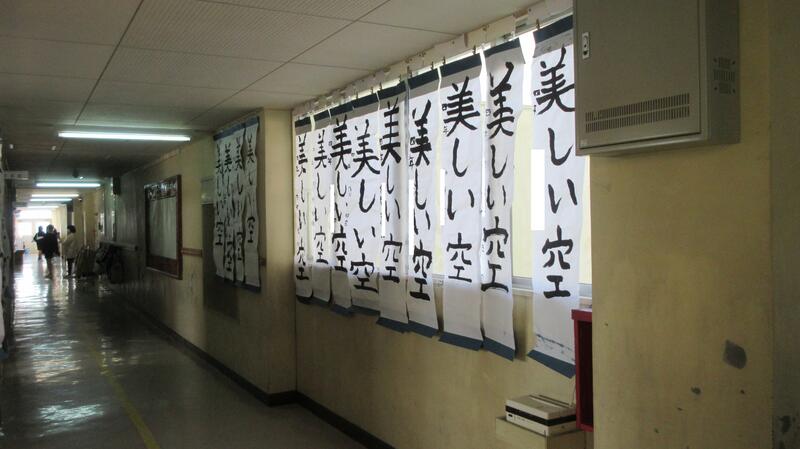 美しい空
美しい空
美しい空
美しい空
美しい空
美しい空
美しい空
美しい空
美しい空
美しい空
四年
美しい空
四年
美しい空
美しい空
四年